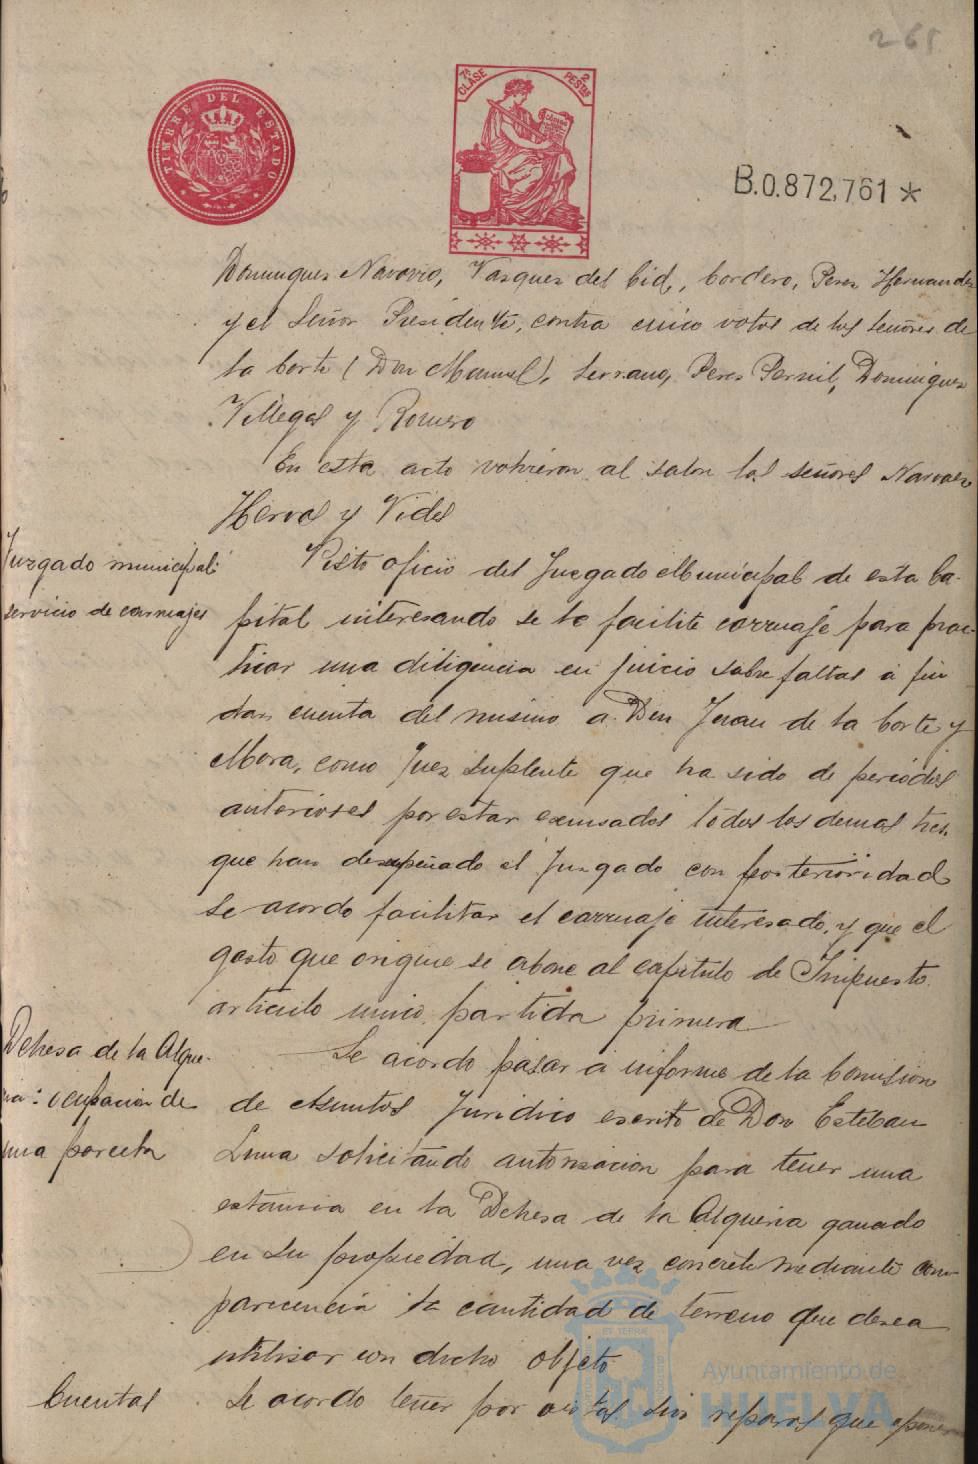 268
TIMBRE DEL ESTADO
7ª CLASE 2 PESTAS
B.0.872,761 *
Dominguez Navarro, Vazquez del Cid, Cordero, Perez Hernandez
y el Señor Presidente, contra cinco votos de los señores de
la Corte (Don Manuel), Serrano, Perez Pernil, Dominguez
Villegas y Romero
En este acto volvieron al salon los señores Narvaez
Hervas y Vides
Juzgado municipal:
servicio de carruajes
Visto oficio del Juzgado Municipal de esta Ca-
pital interesando se le facilite carruaje para prac-
ticar una diligencia en juicio sobre faltas á fin
dan cuenta del mismo a Don Juan de la Corte y
Mora, como Juez suplente que ha sido de periódos
anteriores por estar escusados todos los demas tres.
que han desempeñado el Juzgado con posterioridad
se acordo facilitar el carruaje interesado, y que el
gasto que origine se abone al capitulo de Impuesto
articulo unico partida primera
Dehesa de la Alque-
ria: ocupacion de
una parcela
Se acordo pasar a informe de la Comision
de Asuntos Juridico escrito de Don Esteban
Luna solicitando autorizacion para tener una
estancia en la Dehesa de la Alqueria ganado
en su propiedad, una vez concrete mediante com-
parecencia la cantidad de terreno que desea
utilizar con dicho objeto
Cuentas
Se acordo tener por vistas sin reparos que oponer
Ayuntamiento de
HUELVA